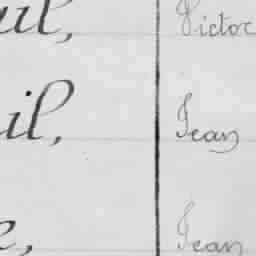 il, Victor
il, Jean
e, Jean